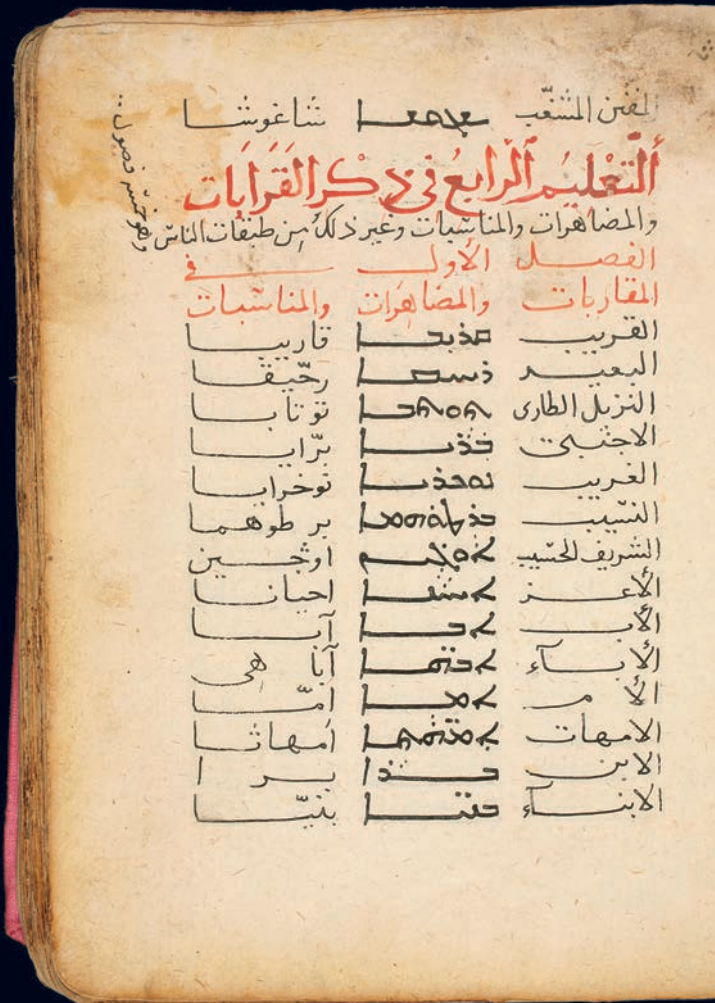 المفتن المشغّب ܫܓܘܫܐ شاغوشا
ألتّعْليُم ٱلرابعُ فى ذكر القَرَابَات
والمصاهرات والمناسبات وغير ذلك من طبقات الناس
وهو خمسة فصول
الفصل الأول فى
المقاربات والمصاهرات والمناسبات
القريب ܩܪܝܒܐ قاريبا
البعيد ܪܚܝܩܐ رحّيقا
النزيل الطارى ܬܘܬܒܐ توتابا
الاجنبى ܒܪܝܐ برّايا
الغريب ܢܘܟܪܝܐ نوخرايا
النسيب ܒܪܛܘܗܡܐ بر طوهما
الشريف الحسيب ܐܘܓܝܢ اوجين
الأعز ܐܚܝܢܐ احيانا
الأب ܐܒܐ آبا
الأباء ܐܒܗ̈ܐ آبا هى
الأم ܐܡܐ امّا
الامهات ܐܡ̈ܗܬܐ امهاثا
الابن ܒܪܐ برا
الابناء ܒܢܝ̈ܐ بنيّا